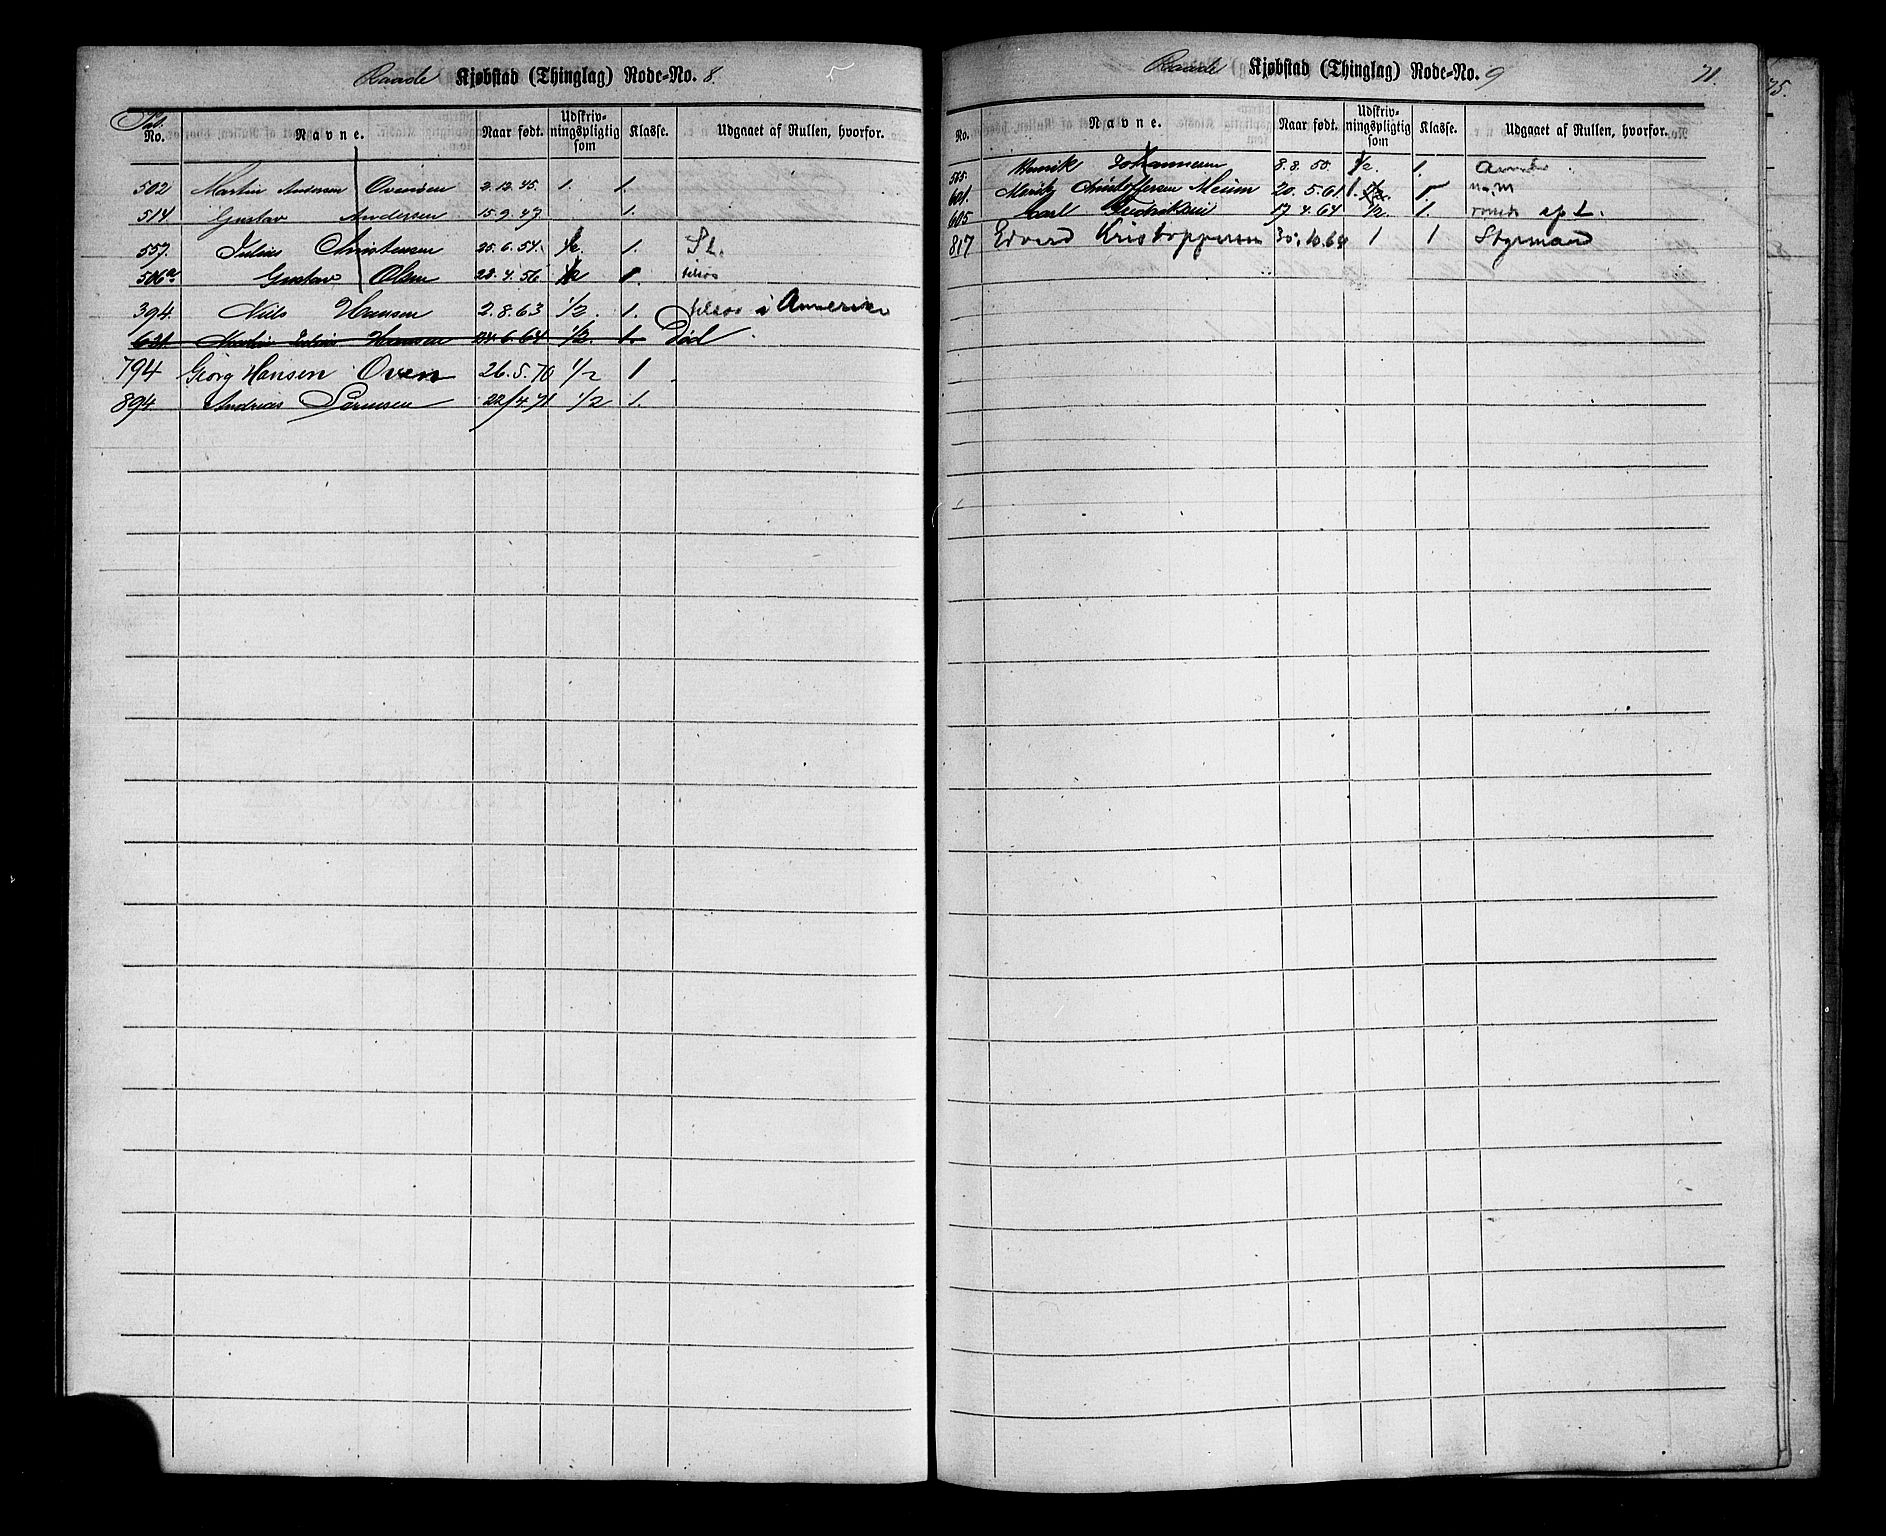 Raade Kjøbstad (Thinglag) Rode-No. 8.
Pat. No. Navne. Naar født. Udskrivningspligtig som Klasse. Udgaaet af Rullen, hvorfor.
502 Martin Andersen Ovensen 2.12.45. 1. 1.
514. Gustav Andersen 15.9.47 1.
557. Julius Christensen 25.6.54. 1/2 1. S L.
506 Gustav Olsen 28.4.56 1/2 1. tilsøs
394. Nils Hansen 2.8.63 1/2. 1. tilsøs i Amerika
631 Martin Julius Hansen 24.6.64 1/2. 1. Død
794 Georg Hansen Oven 26.5.70 1/2 1
894. Andreas Sørensen 22/4.71 1/2 1.
Raade Kjøbstad (Thinglag) Rode-No. 9
71.
75.
No. Navne. Naar født. Udskrivningspligtig som Klasse. Udgaaet af Rullen, hvorfor.
565. Henrik Johannesen 8.3.55. 1/2. 1.
621. Christoffersen 20.5.61 1.
605 Carl Fredriksen 17.4.64 1/2 1.
817 Edvard Kristoppersen 30.10.64 1 1 Styrmand